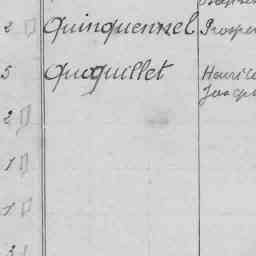 2 Quinquennel Prosper
5 Quoquillet Henri
2
1
1
3